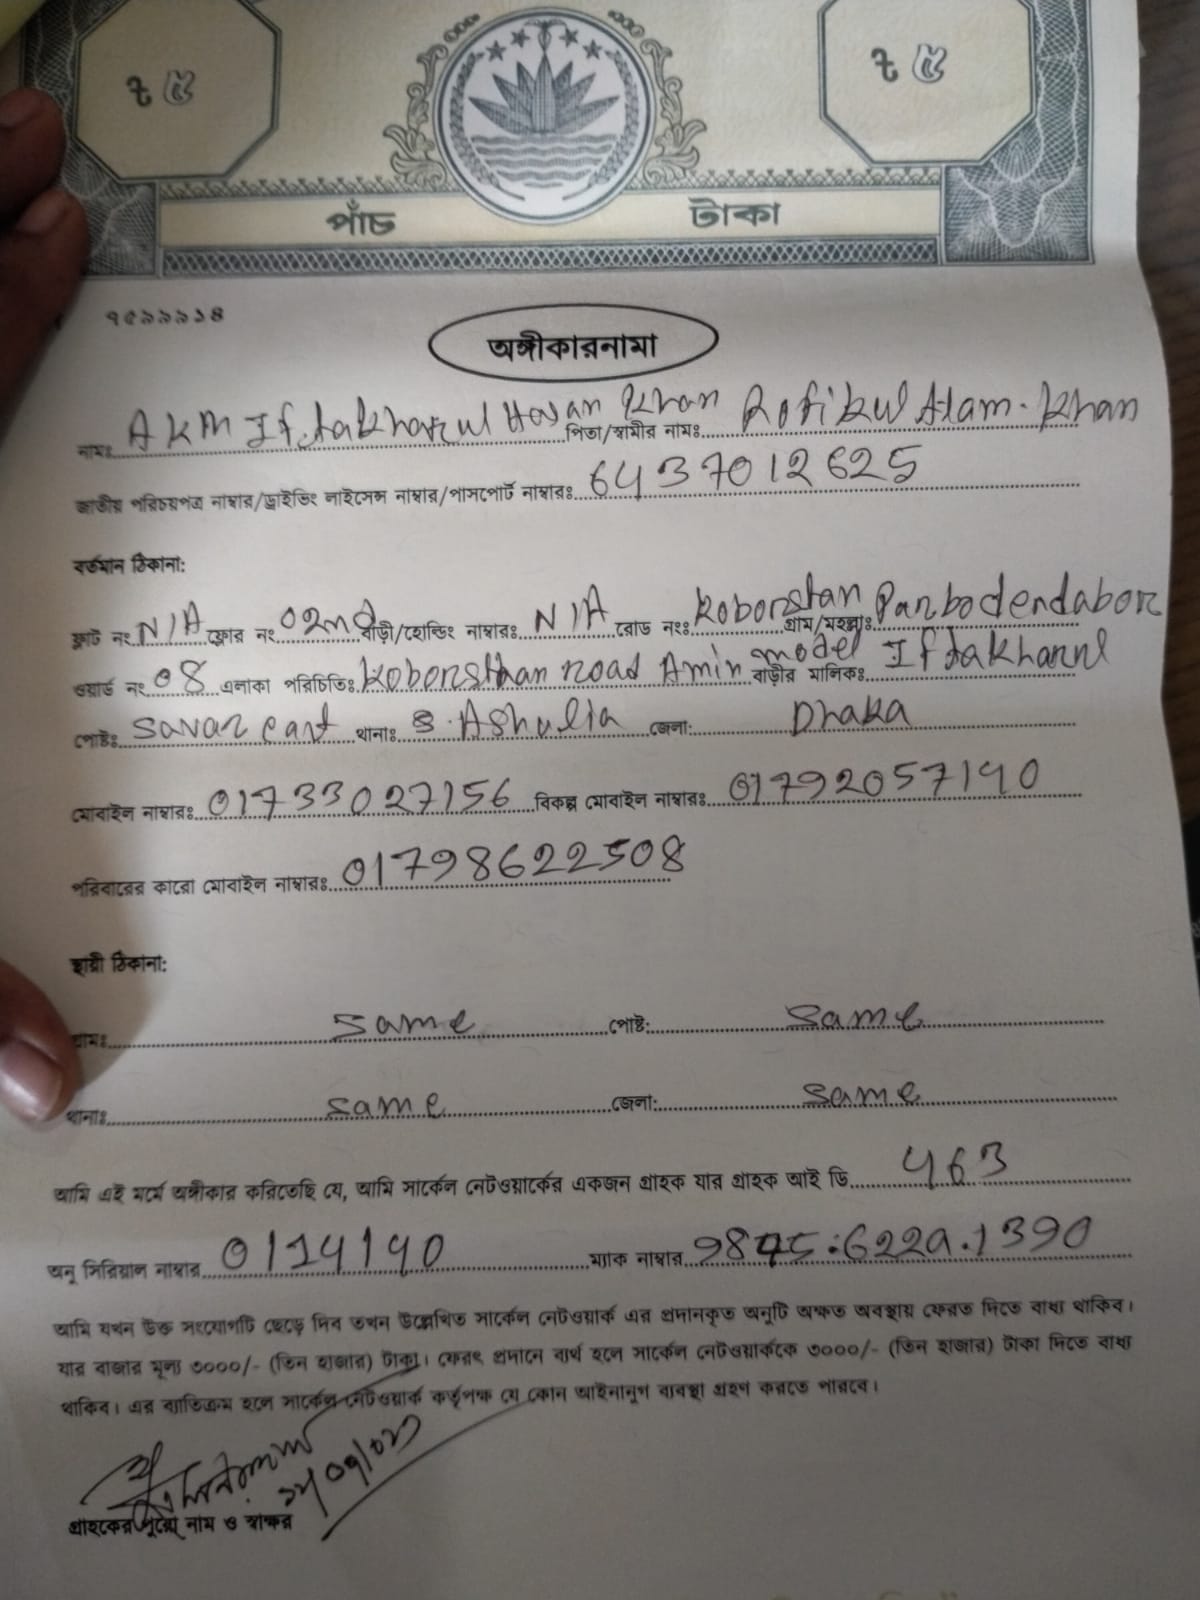 ৳ ৫ ৳ ৫
পাঁচ টাকা
৭৫৯৯৯১৪
অঙ্গীকারনামা
নামঃ AKM Iftakharul Hasan Khan পিতা/স্বামীর নামঃ Rofikul Alam. Khan
জাতীয় পরিচয়পত্র নাম্বার/ড্রাইভিং লাইসেন্স নাম্বার/পাসপোর্ট নাম্বারঃ 6437012625
বর্তমান ঠিকানা:
ফ্লাট নং N/A ফ্লোর নং 02nd বাড়ী/হোল্ডিং নাম্বারঃ N/A রোড নংঃ Koborstan গ্রাম/মহল্লাঃ Panbodendabor
ওয়ার্ড নং 08 এলাকা পরিচিতি: Koborsthan road Amin model বাড়ীর মালিক: Iftakharul
পোষ্টঃ Savar east থানাঃ Ashulia জেলা: Dhaka
মোবাইল নাম্বারঃ 01733027156 বিকল্প মোবাইল নাম্বারঃ 01792057140
পরিবারের কারো মোবাইল নাম্বারঃ 01798622508
স্থায়ী ঠিকানা:
গ্রামঃ same পোষ্ট: same
থানাঃ same জেলা: same
আমি এই মর্মে অঙ্গীকার করিতেছি যে, আমি সার্কেল নেটওয়ার্কের একজন গ্রাহক যার গ্রাহক আই ডি 463
অনু সিরিয়াল নাম্বার 0114140 ম্যাক নাম্বার
আমি যখন উক্ত সংযোগটি ছেড়ে দিব তখন উল্লেখিত সার্কেল নেটওয়ার্ক এর প্রদানকৃত অনুটি অক্ষত অবস্থায় ফেরত দিতে বাধ্য থাকিব।
যার বাজার মূল্য ৩০০০/- (তিন হাজার) টাকা। ফেরৎ প্রদানে ব্যর্থ হলে সার্কেল নেটওয়ার্ককে ৩০০০/- (তিন হাজার) টাকা দিতে বাধ্য
থাকিব। এর ব্যাতিক্রম হলে সার্কেল নেটওয়ার্ক কর্তৃপক্ষ যে কোন আইনানুগ ব্যবস্থা গ্রহণ করতে পারবে।
গ্রাহকের পুরো নাম ও স্বাক্ষর